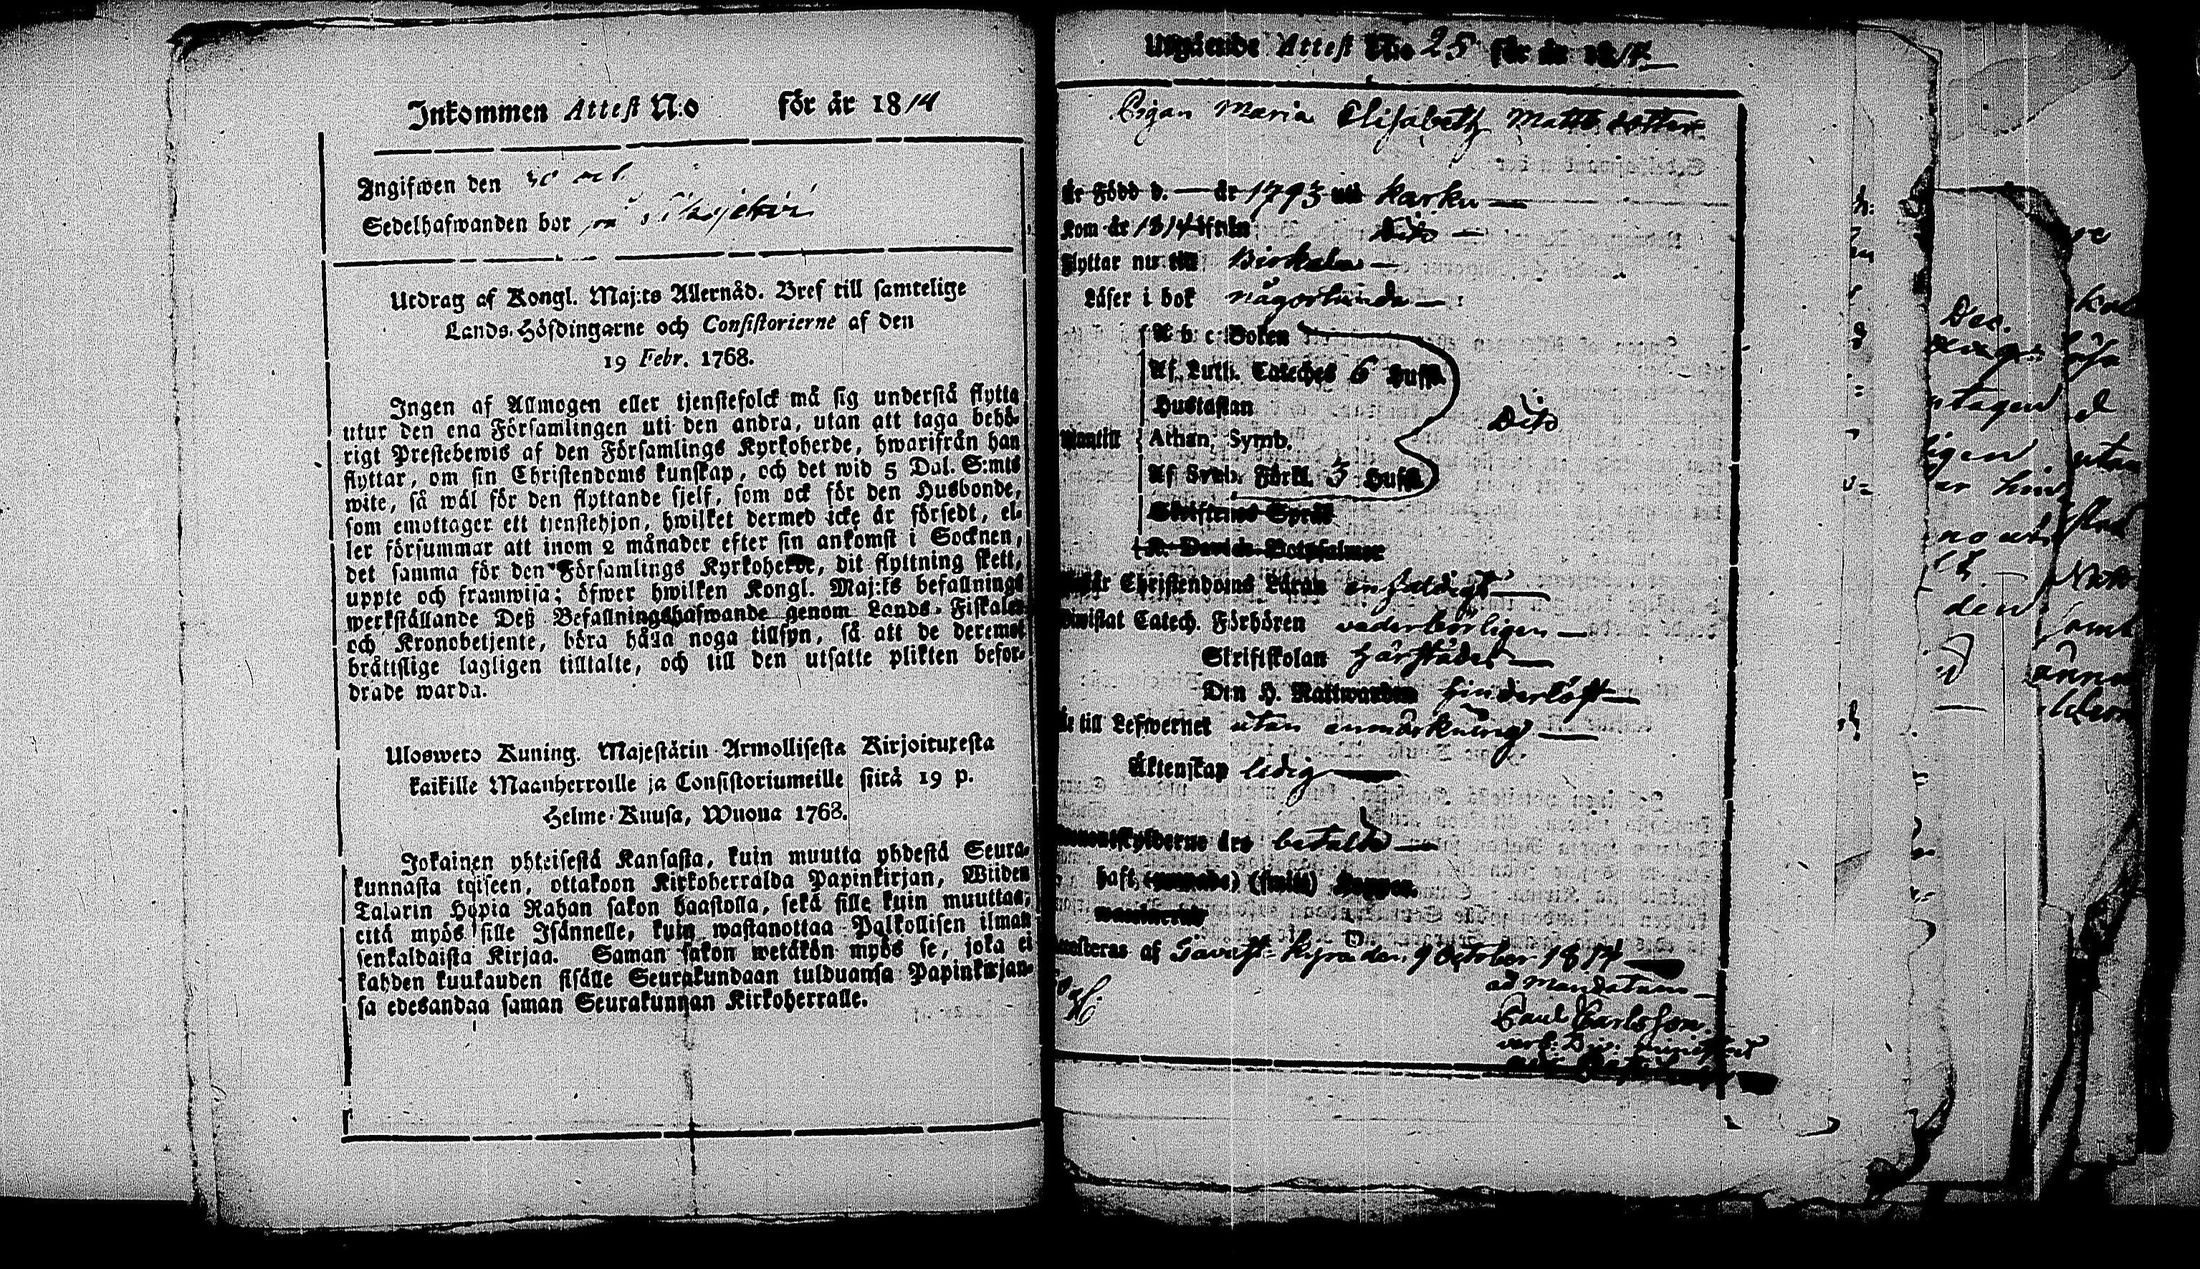 Inkommen Attest N:o för år 1814
Angifwen den
Sedelhafwanden bor
Utdrag af Kongl. Maj:ts Allernåd. Bref till samtelige
Lands-Höfdingarne och Consistorierne af den
19 Febr. 1768.
Ingen af Allmogen eller tjenstefolck må sig understå flytta
utur den ena Församlingen uti den andra, utan att taga behö-
rigt Prestebewis af den Församlings Kyrkoherde, hwarifrån han
flyttar, om sin Christendoms kunskap, och det wid 5 Dal. S:mts
wite, så wäl för den flyttande sjelf, som ock för den Husbonde,
som emottager ett tjenstehjon, hwilket dermed icke är försedt, el-
ler försummar att inom 2 månader efter sin ankomst i Socknen,
det samma för den Församlings Kyrkoherde, dit flyttning skett,
uppte och framwisa; öfwer hwilken Kongl. Maj:ts befallnings
werkställande Deß Befallningshafwande genom Lands-Fiskaler
och Kronobetjente, böra hålla noga tillsyn, så att de deremot
bråttslige lagligen tilltalte, och till den utsatte plikten befor-
drade warda.
Ulosweto Kuning. Majestätin Armollisesta Kirjoituxesta
kaikille Maanherroille ja Consistoriumeille siitä 19 p.
Helme-Kuusa, Wuona 1768.
Jokainen yhteisestä Kansasta, kuin muutta yhdestä Seura-
kunnasta toiseen, ottakoon Kirkoherralda Papinkirjan, Wiiden
Talarin Hopia Rahan sakon haastolla, sekä sille kuin muuttaa,
että myös sille Isännelle, kuin wastanottaa Palkollisen ilman
senkaldaista Kirjaa. Saman sakon wetäkön myös se, joka ei
kahden kuukauden sisälle Seurakundaan tulduansa Papinkirjan-
sa edesandaa saman Seurakunnan Kirkoherralle.
Utgående Attest N:o 25 för år 1814
Pigan Maria Elisabeth Matts dotter
är Född d. — år 1793 uti Karku —
Kom år 1814 ifrån Dito —
Flyttar nu till Birkala —
Läser i bok någorlunda —
A b c Boken
Af Luth. Cateches 6 Hufst.
Hustaflan
Athan. Symb.
Af Sveb. Förkl. 3 Hufst.
Dito
Skriftenes Språk
K. Davids Botpsalmer
Christendoms Läran enfaldigt —
Catech. Förhören vederbörligen —
Skriftskolan härstädes —
Den H. Nattwarden hinderlöst —
till Lefwernet utan anmärkning —
Äktenskap ledig —
äro betalde —
haft (smitt) Koppor.
af Tavast-Kyro den 9 October 1814
ad mandatum
Paul Carlsson